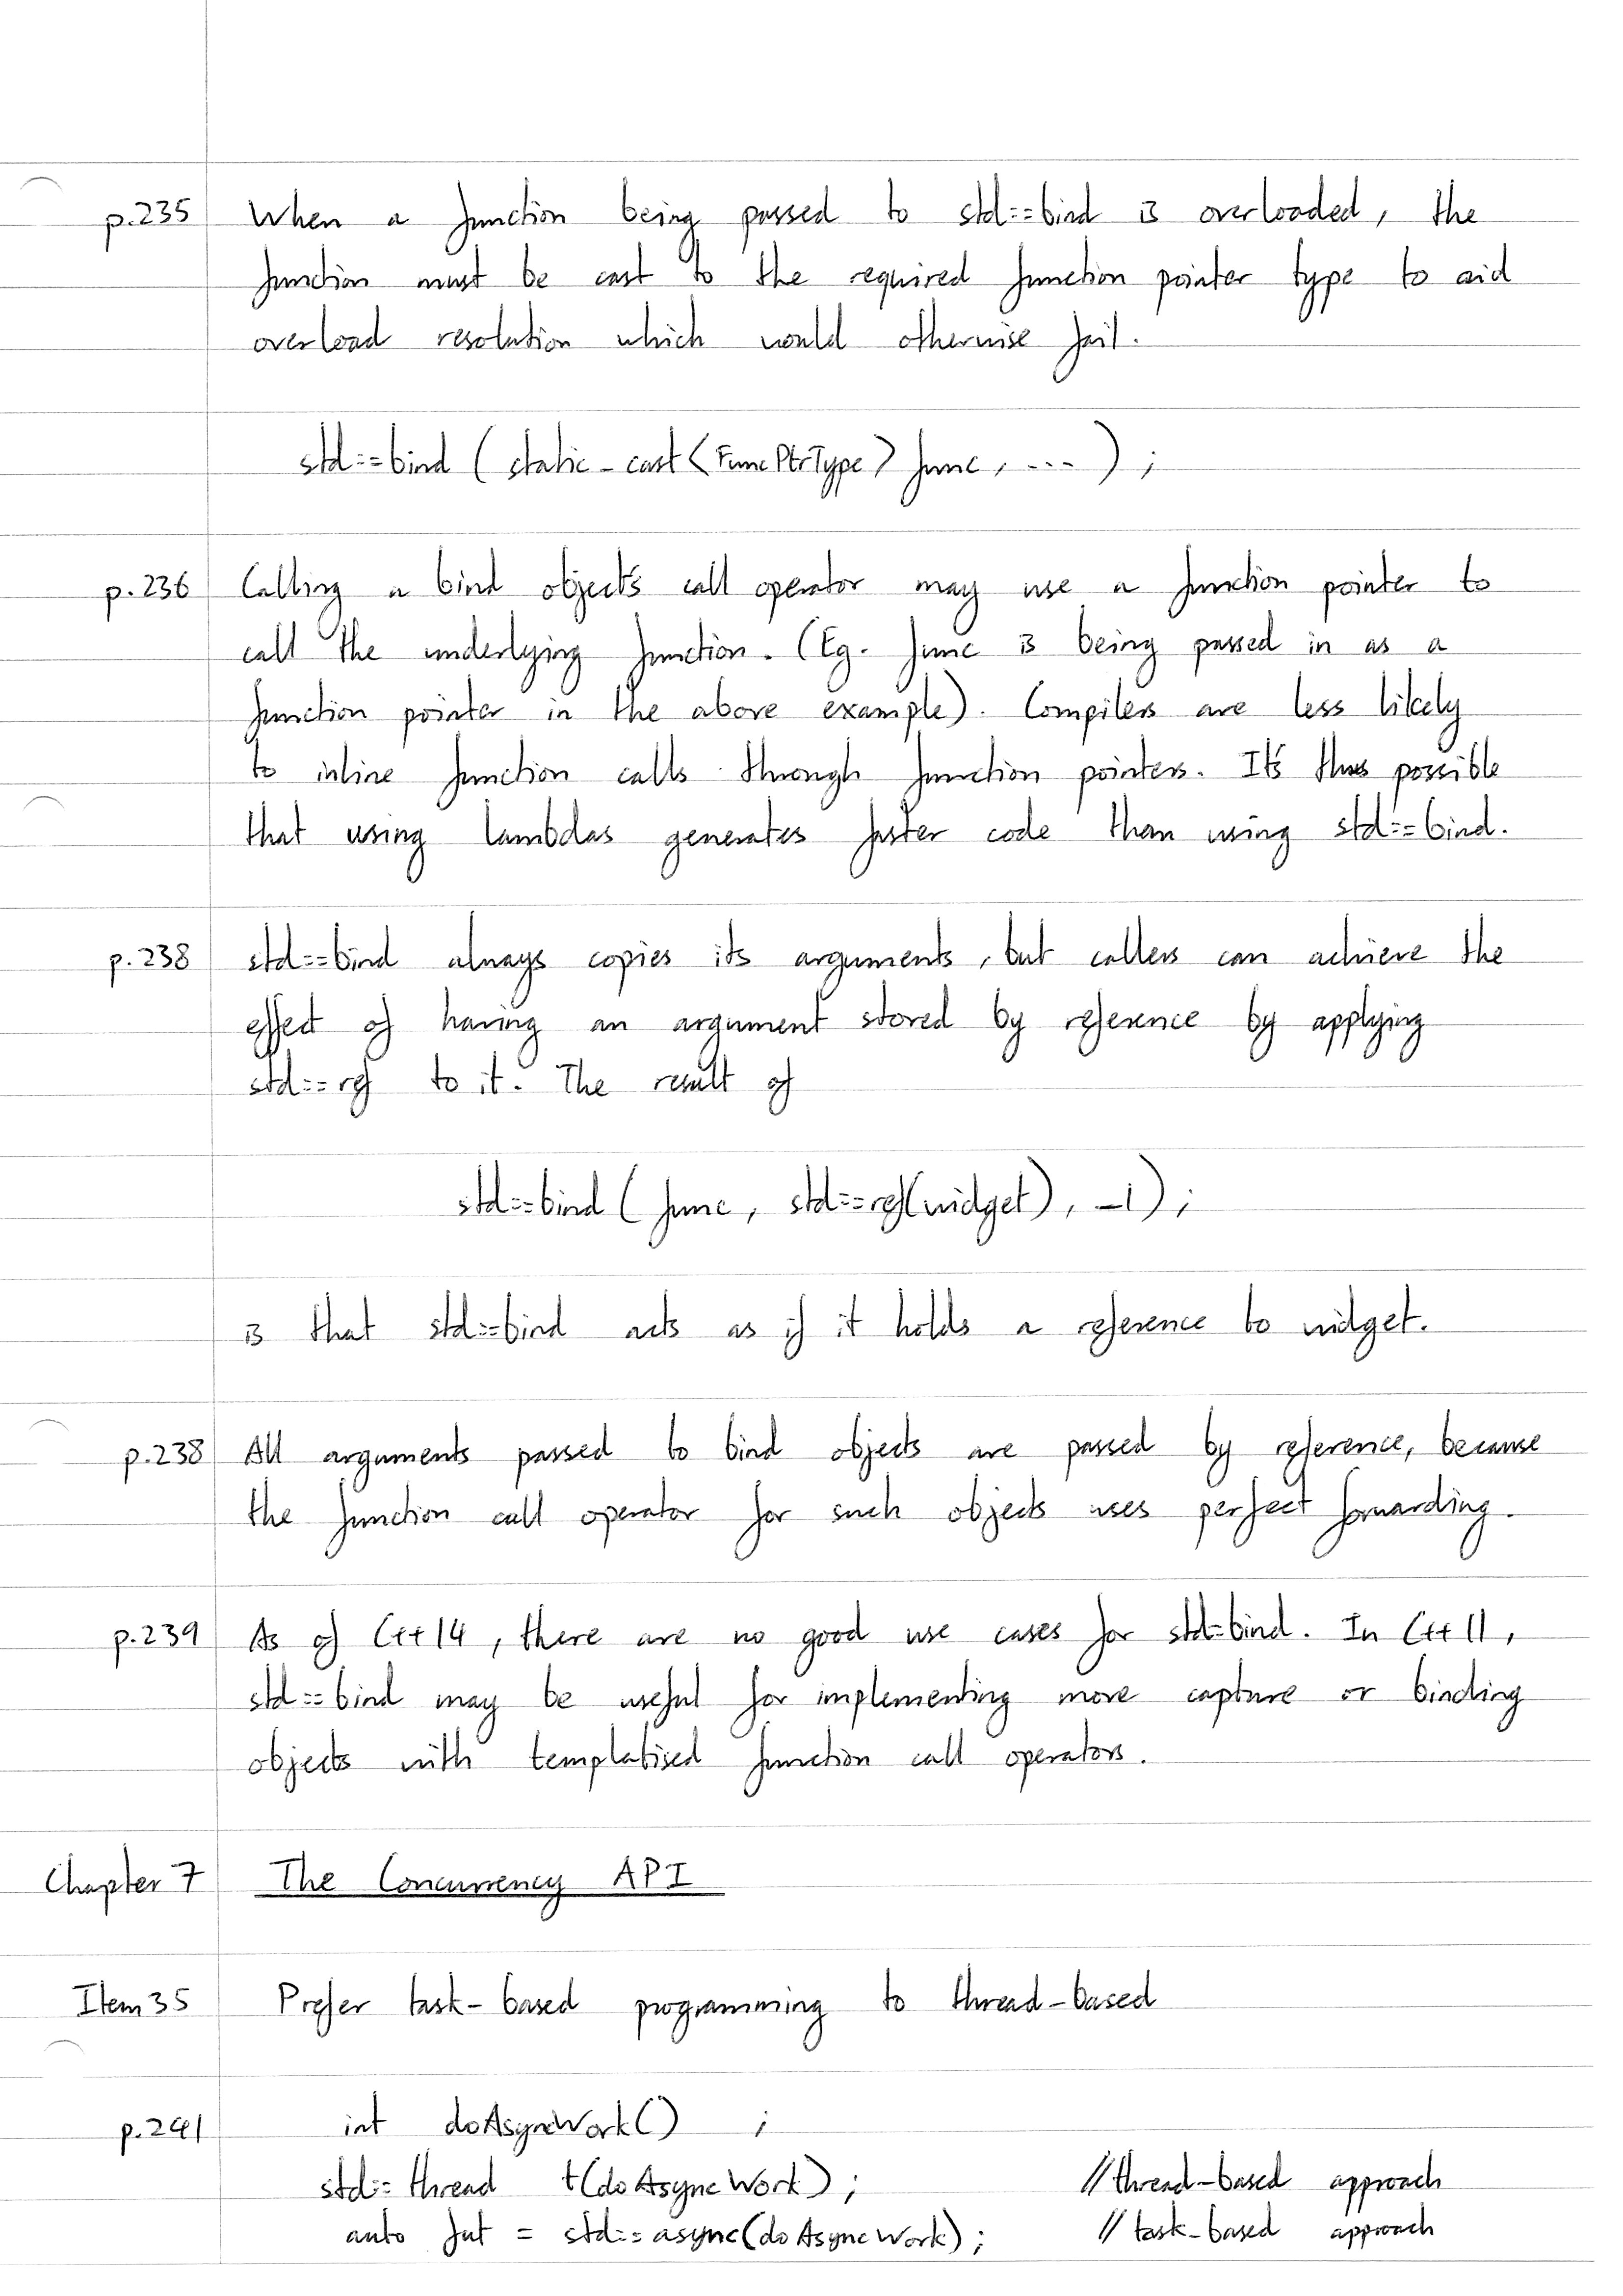 p.235 When a function being passed to std::bind is overloaded, the
function must be cast to the required function pointer type to aid
overload resolution which would otherwise fail.
std::bind (static_cast<FuncPtrType> func, ...);
p.236 Calling a bind object's call operator may use a function pointer to
call the underlying function. (Eg. func is being passed in as a
function pointer in the above example). Compilers are less likely
to inline function calls through function pointers. It's thus possible
that using lambdas generates faster code than using std::bind.
p.238 std::bind always copies its arguments, but callers can achieve the
effect of having an argument stored by reference by applying
std::ref to it. The result of
std::bind (func, std::ref(widget), _1);
is that std::bind acts as if it holds a reference to widget.
p.238 All arguments passed to bind objects are passed by reference, because
the function call operator for such objects uses perfect forwarding.
p.239 As of C++14, there are no good use cases for std::bind. In C++11,
std::bind may be useful for implementing move capture or binding
objects with templatised function call operators.
Chapter 7 The Concurrency API
Item 35 Prefer task-based programming to thread-based
p.241 int doAsyncWork() ;
std::thread t(doAsyncWork); //thread-based approach
auto fut = std::async(doAsyncWork); //task-based approach